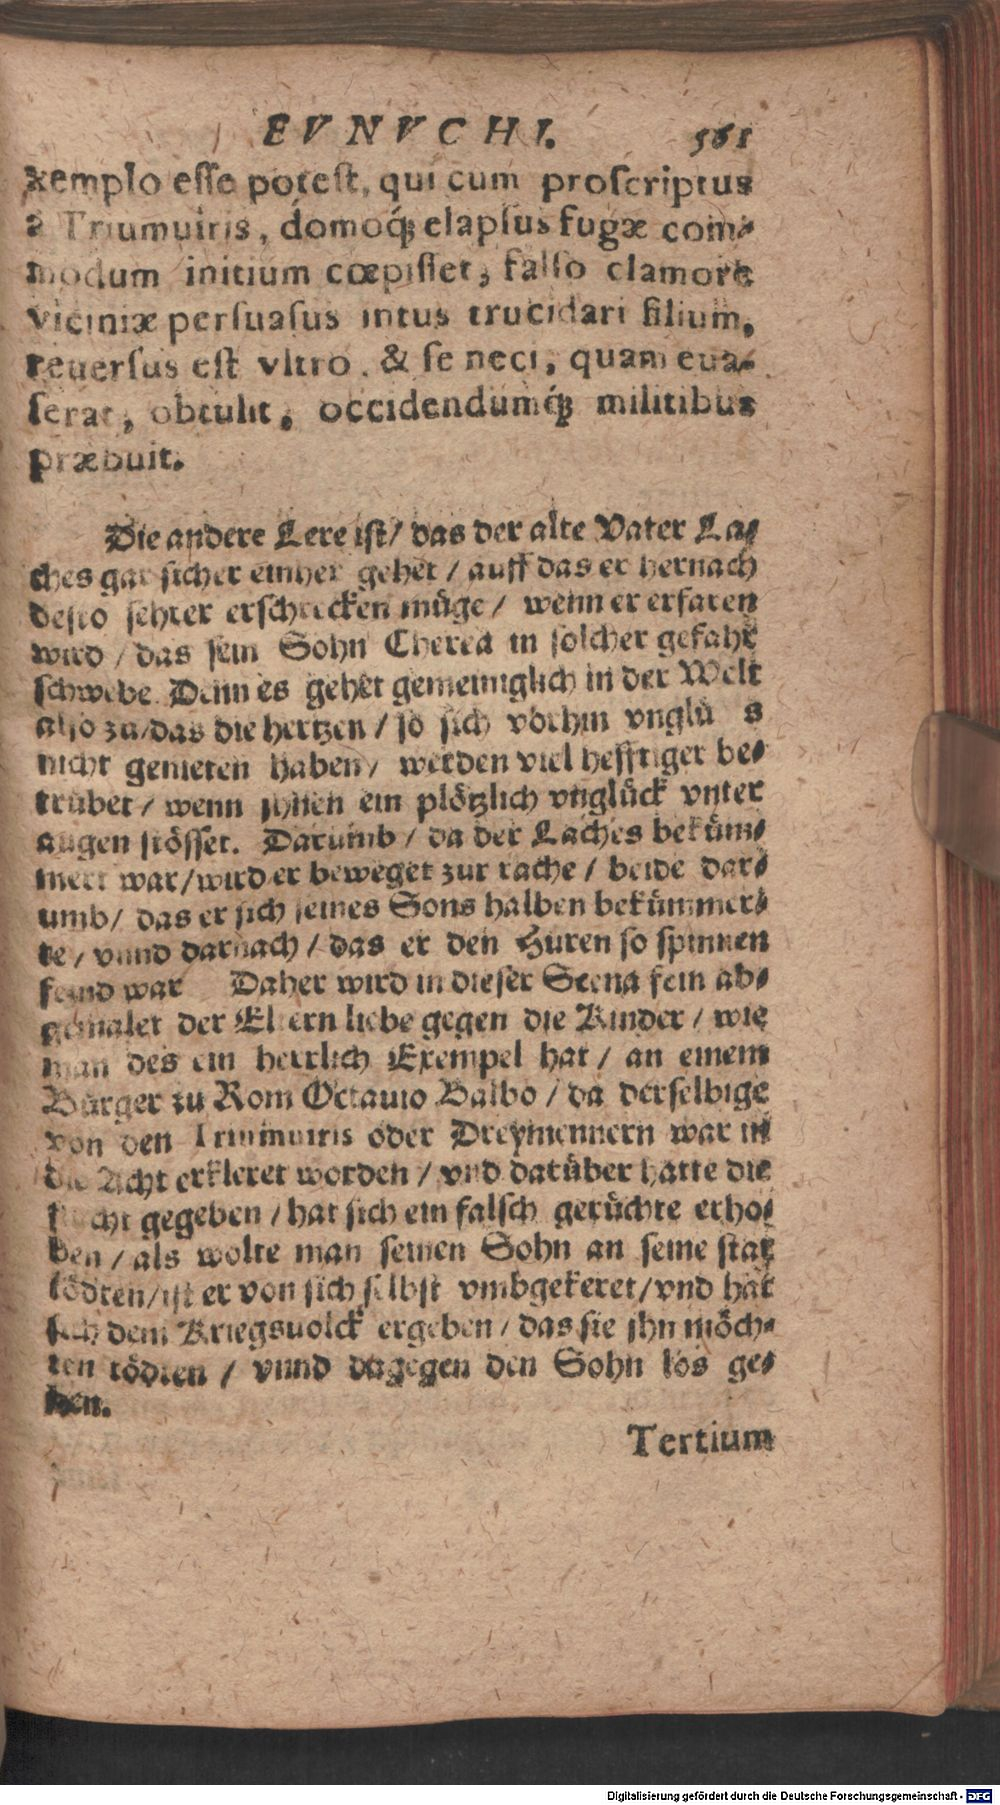 EVNVCHI. 561
xemplo esse potest, qui cum proscriptus
a Triumuiris, domoq́; elapsus fugæ com-
modum initium cœpisset, falso clamore
viciniæ persuasus intus trucidari filium,
reuersus est vltro, & se neci, quam eua-
serat, obtulit, occidendumq́; militibus
præbuit.
Die andere Lere ist/ das der alte Vater La-
ches gar sicher einher gehet / auff das er hernach
desto sehrer erschrecken müge / wenn er erfaren
wird / das sein Sohn Cherea in solcher gefahr
schwebe. Denn es gehet gemeiniglich in der Welt
also zu/das die hertzen / so sich vorhin vnglü s
nicht genieten haben/ werden viel hefftiger be-
trübet / wenn jhnen ein plötzlich vnglück vnter
augen stösset. Darumb / da der Laches beküm-
mert war/wird er beweget zur rache / beide dar-
umb/ das er sich seines Sons halben bekümmer-
te / vnnd darnach / das er den Huren so spinnen
feind war Daher wird in dieser Scena fein ab-
gemalet der Eltern liebe gegen die Kinder / wie
man des ein herrlich Exempel hat / an einem
Bürger zu Rom Octauio Balbo / da derselbige
von den Triumuiris oder Dreymennern war in
die Acht erkleret worden / vnd darüber hatte die
flucht gegeben / hat sich ein falsch gerüchte erho-
ben / als wolte man seinen Sohn an seine stat
tödten/ist er von sich selbst vmbgekeret/vnd hat
sich dem Kriegsuolck ergeben / das sie jhn möch-
ten tödten / vnnd dagegen den Sohn los ge-
ben.
Tertium
Digitalisierung gefördert durch die Deutsche Forschungsgemeinschaft - DFG